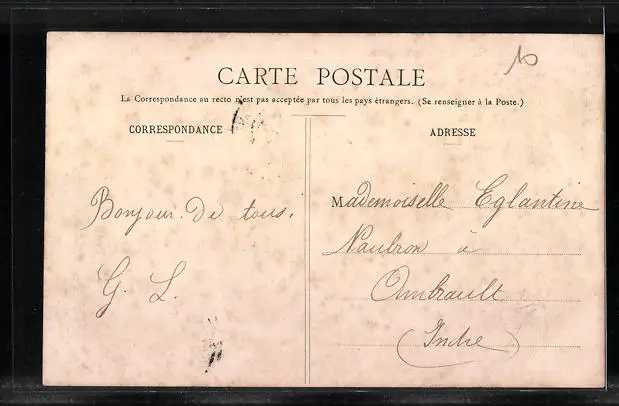 CARTE POSTALE
La Correspondance au recto n'est pas acceptée par tous les pays étrangers. (Se renseigner à la Poste.)
CORRESPONDANCE
ADRESSE
Bonjour de tous.
G. L.
Mademoiselle Eglantine
Naubron à
Ambrault
(Indre)